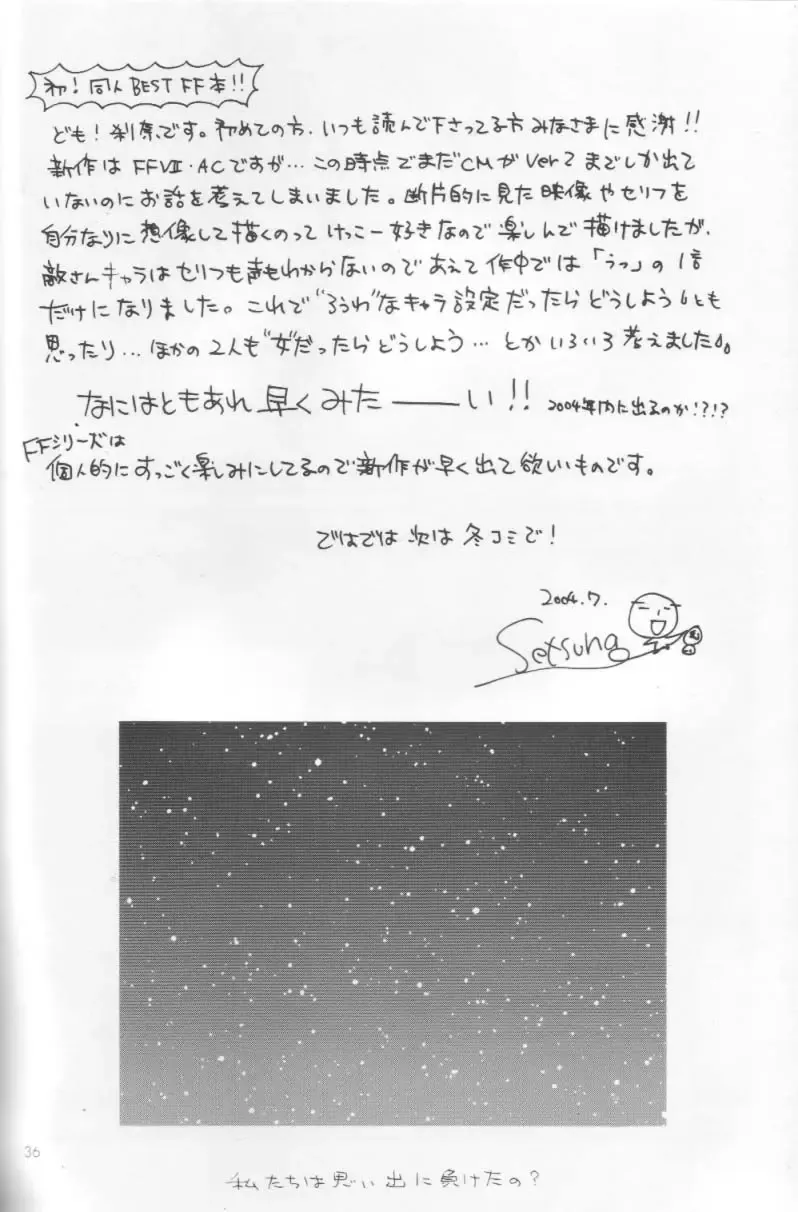 初!同人BEST FF本!!
ども!刹那です。初めての方、いつも読んで下さってる方みなさまに感謝!!
新作はFFⅦ・ACですが…この時点でまだCMがVer2までしか出て
いないのにお話を考えてしまいました。断片的に見た映像やセリフを
自分なりに想像して描くのってけっこー好きなので楽しんで描けましたが、
敵さんキャラはセリフも声もわからないのであえて作中では「うっ」の1音
だけになりました。これで"ろうわ"なキャラ設定だったらどうしようとも
思ったり…ほかの2人も"女"だったらどうしよう…とかいろいろ考えました。
なにはともあれ早くみたーーい!! 2004年内に出るのか!?!?
FFシリーズは
個人的にすっごく楽しみにしてるので新作が早く出て欲しいものです。
ではでは次は冬コミで!
2004.7.
Setsuna
36
私たちは思い出に負けたの?